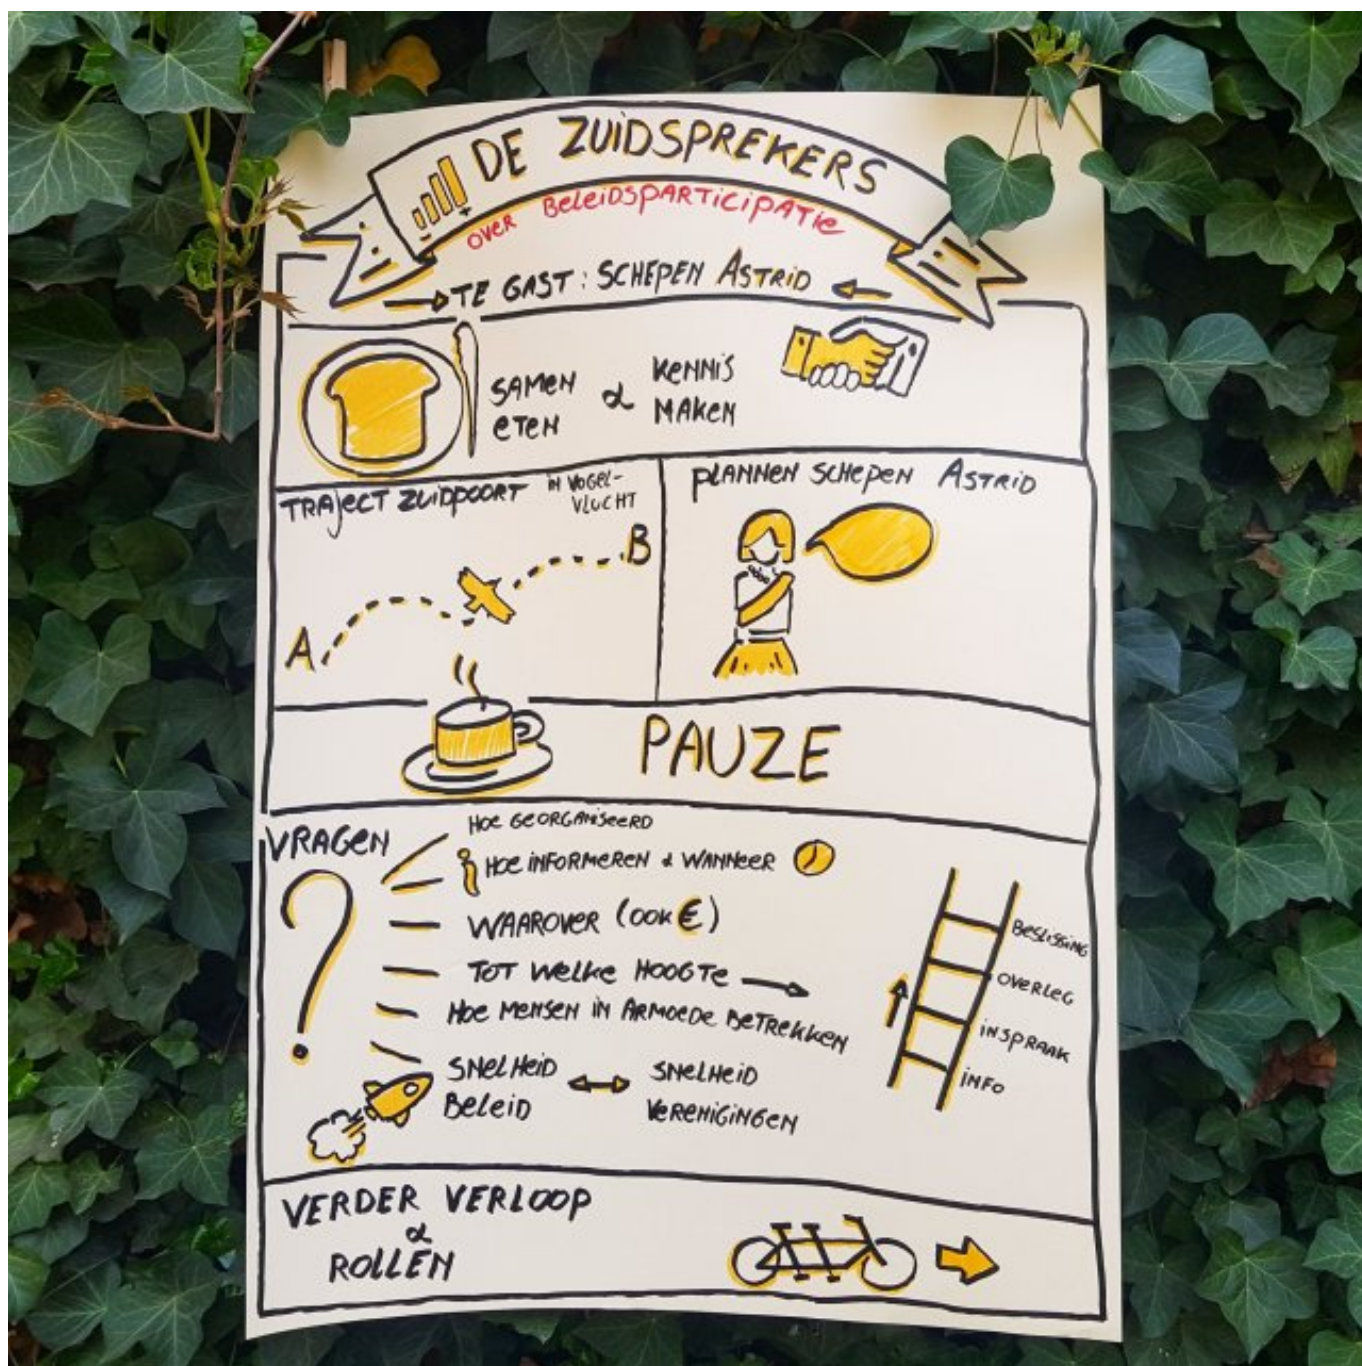 DE ZUIDSPREKERS
over BELEIDSPARTICIPATIE
TE GAST: SCHEPEN ASTRID
SAMEN
ETEN
&
KENNIS
MAKEN
TRAJECT ZUIDPOORT in VOGEL-
VLUCHT
A
B
PLANNEN SCHEPEN ASTRID
PAUZE
VRAGEN
?
HOE GEORGANISEERD
i HOE INFORMEREN & WANNEER
WAAROVER (OOK €)
TOT WELKE HOOGTE
HOE MENSEN IN ARMOEDE BETREKKEN
SNELHEID
BELEID
SNELHEID
VERENIGINGEN
BESLISSING
OVERLEG
INSPRAAK
INFO
VERDER VERLOOP
&
ROLLEN